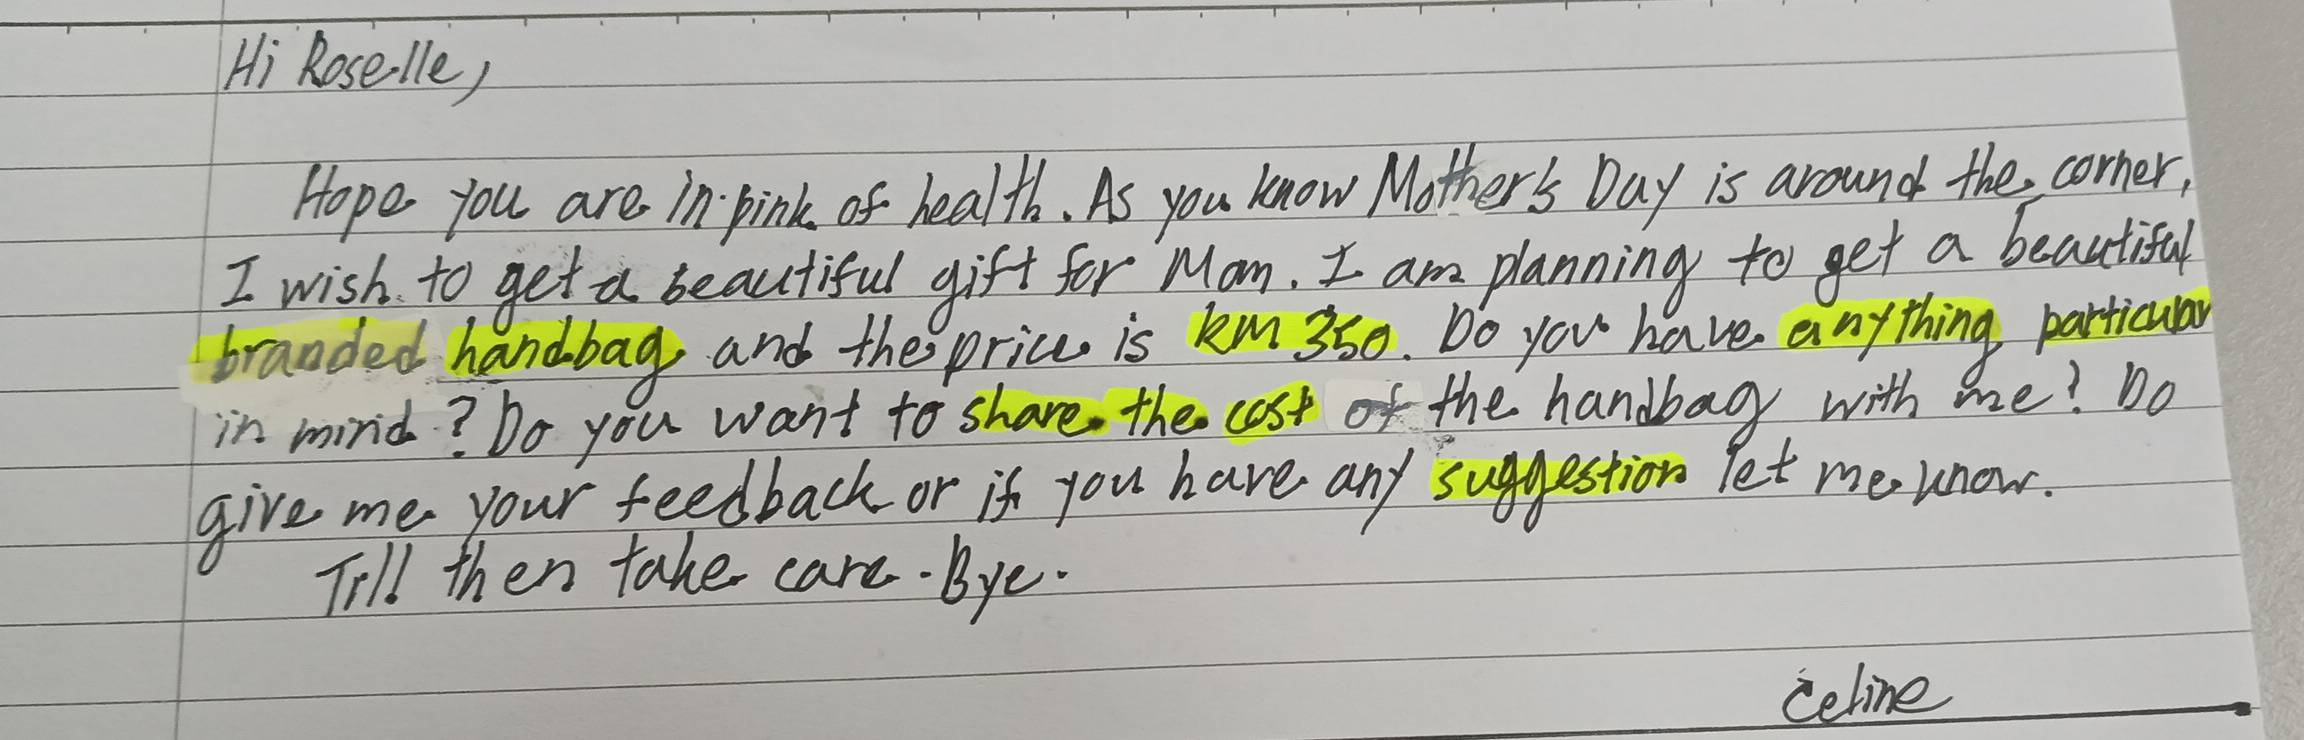 Hi Roselle,
Hope you are in pink of health. As you know Mother's Day is around the corner,
I wish to get a beautiful gift for Mom. I am planning to get a beautiful
branded handbag and the price is RM 350. Do you have anything particular
in mind? Do you want to share the cost of the handbag with me? Do
give me your feedback or if you have any suggestion let me know.
Till then take care. Bye.
Celine